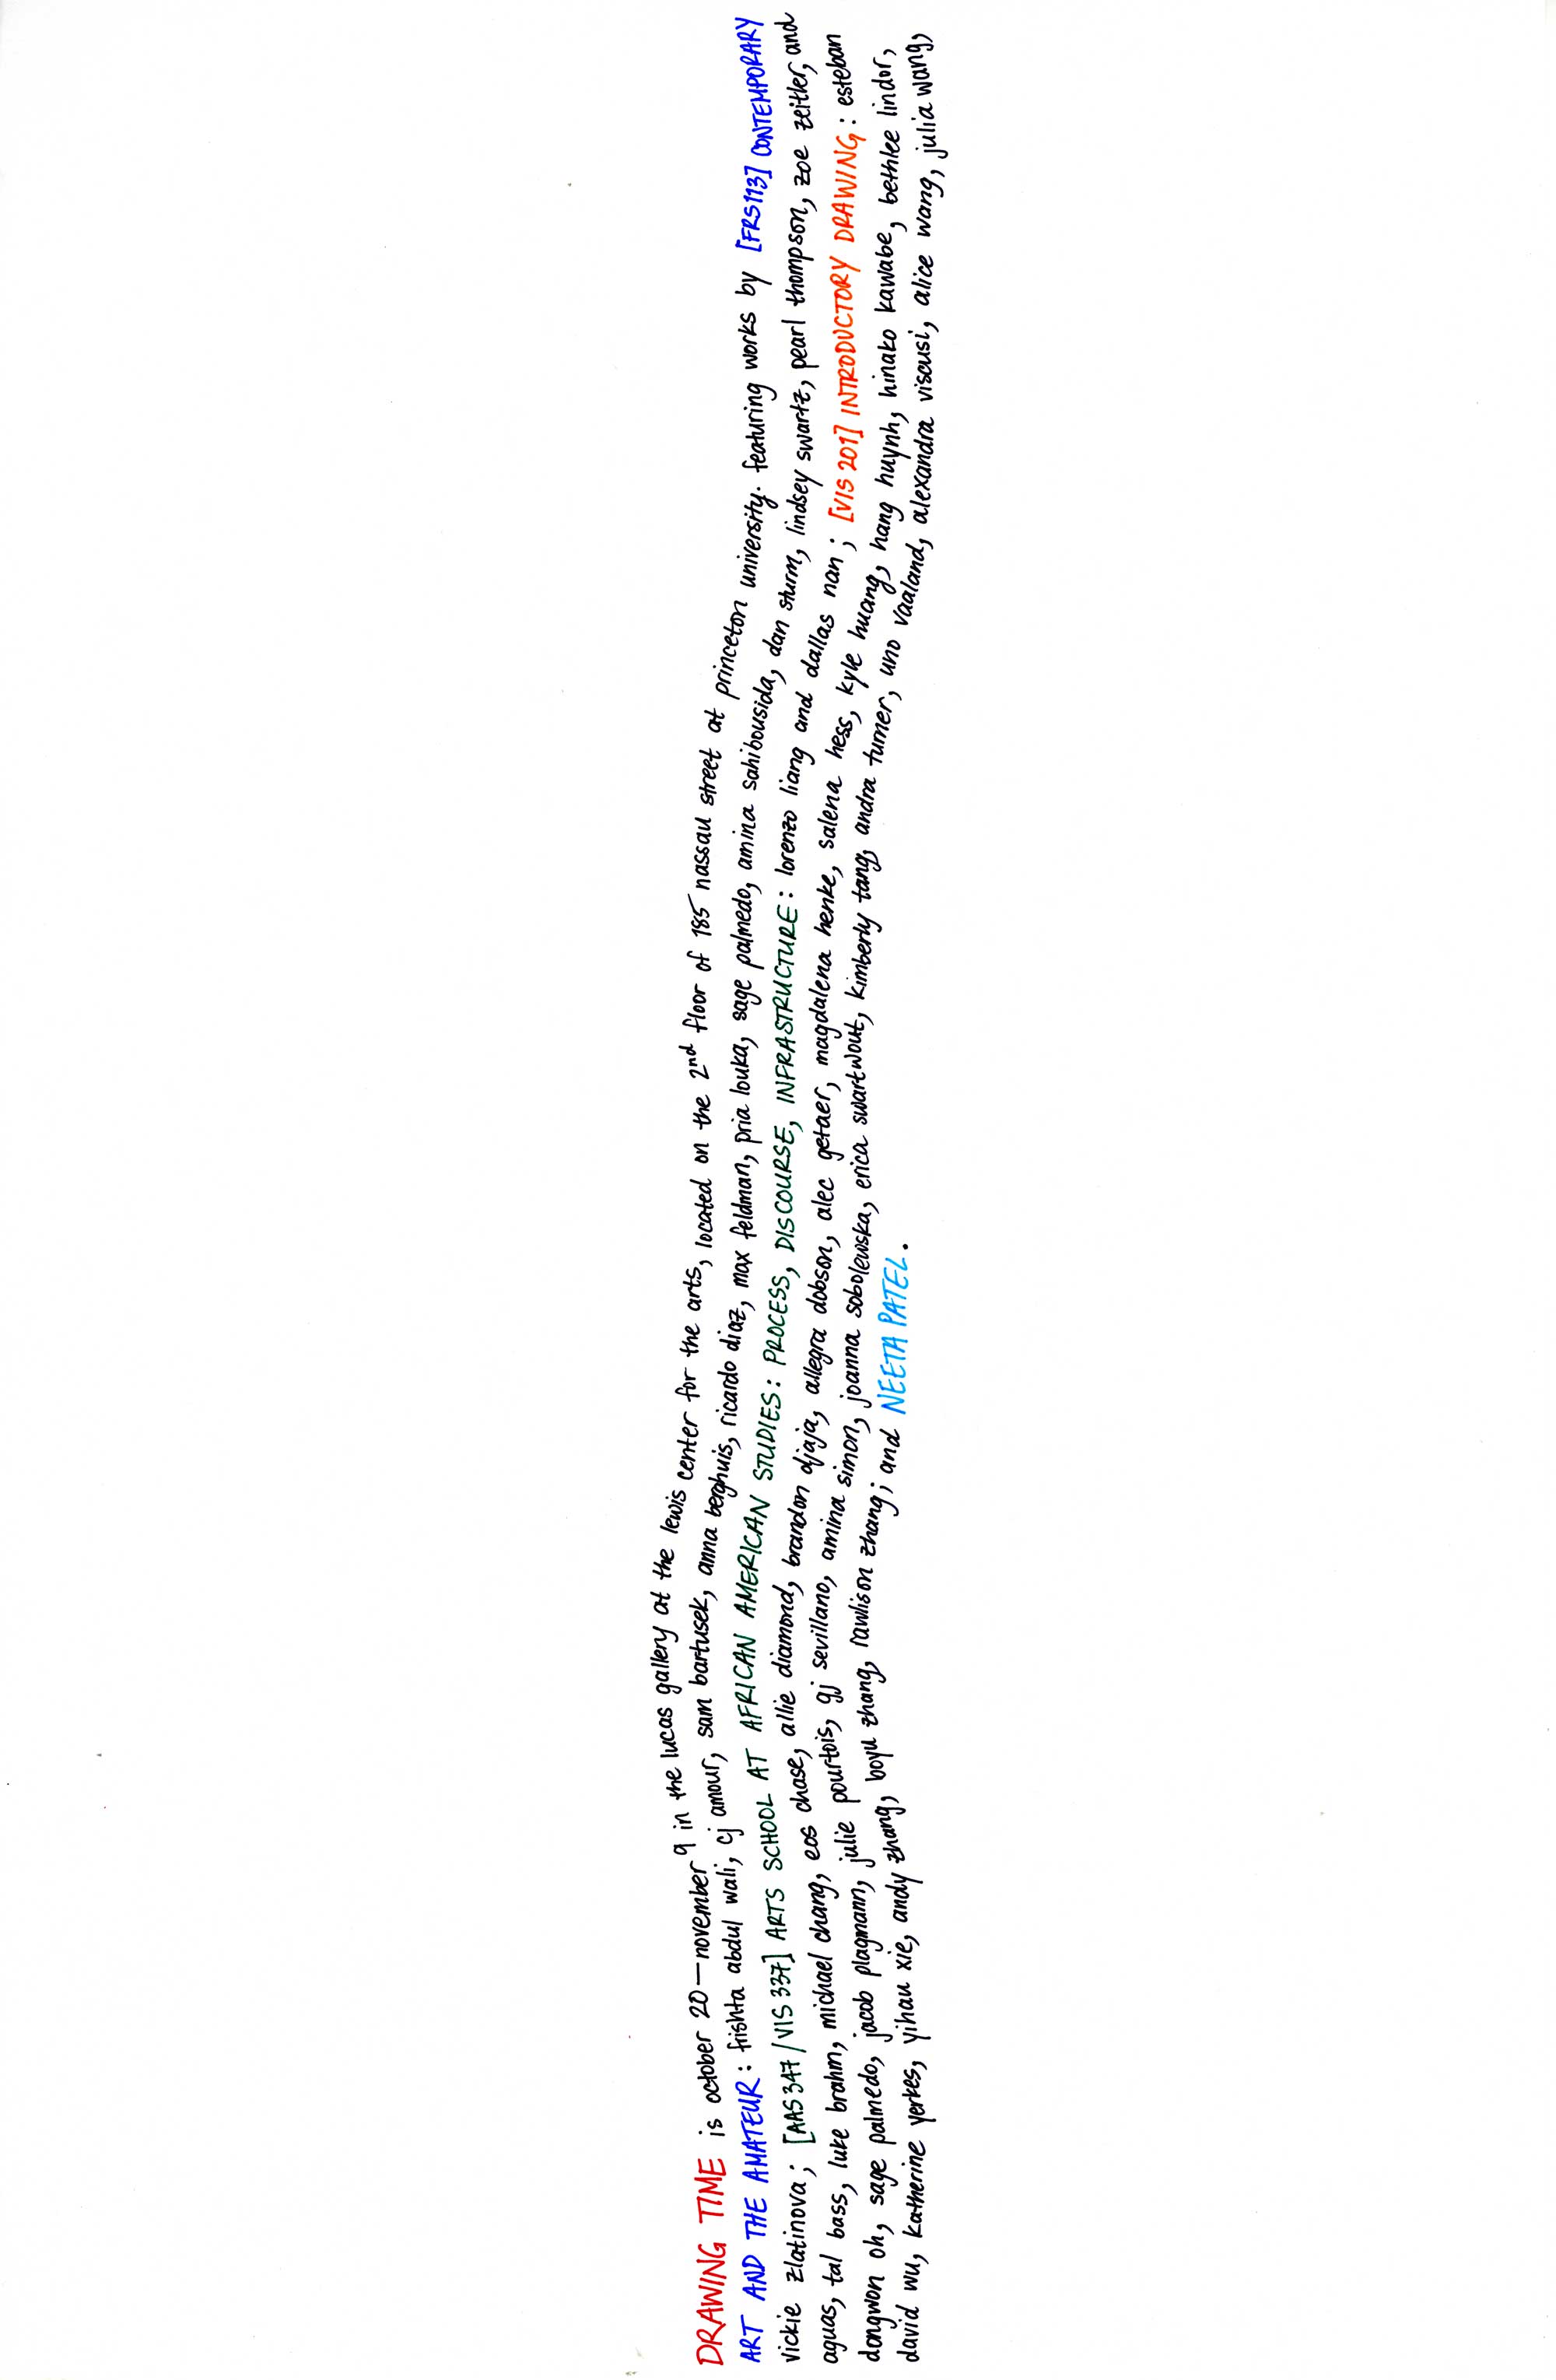 DRAWING TIME is october 20—november 9 in the lucas gallery at the lewis center for the arts, located on the 2nd floor of 185 nassau street at princeton university. featuring works by [FRS113] CONTEMPORARY
ART AND THE AMATEUR: frishta abdul wali, cj amour, sam bartusek, anna berghuis, ricardo diaz, max feldman, pria louka, sage palmedo, amina sahibousida, dan sturm, lindsey swartz, pearl thompson, zoe zeitler, and
vickie zlatinova; [AAS 347/VIS 337] ARTS SCHOOL AT AFRICAN AMERICAN STUDIES: PROCESS, DISCOURSE, INFRASTRUCTURE: lorenzo liang and dallas nan; [VIS 201] INTRODUCTORY DRAWING: esteban
aguas, tal bass, luke brahm, michael chang, eos chase, allie diamond, brandon djaja, allegra dobson, alec getaer, magdalena henke, salena hess, kyle huang, hang huynh, hinako kawabe, bethlee lindor,
dongwon oh, sage palmedo, jacob plagmann, julie pourtois, gj sevillano, amina simon, joanna sobolewska, erica swartwout, kimberly tang, andra turner, uno vaaland, alexandra viscusi, alice wang, julia wang,
david wu, katherine yerkes, yihau xie, andy zhang, boyu zhang, rawlison zhang; and NEETA PATEL.